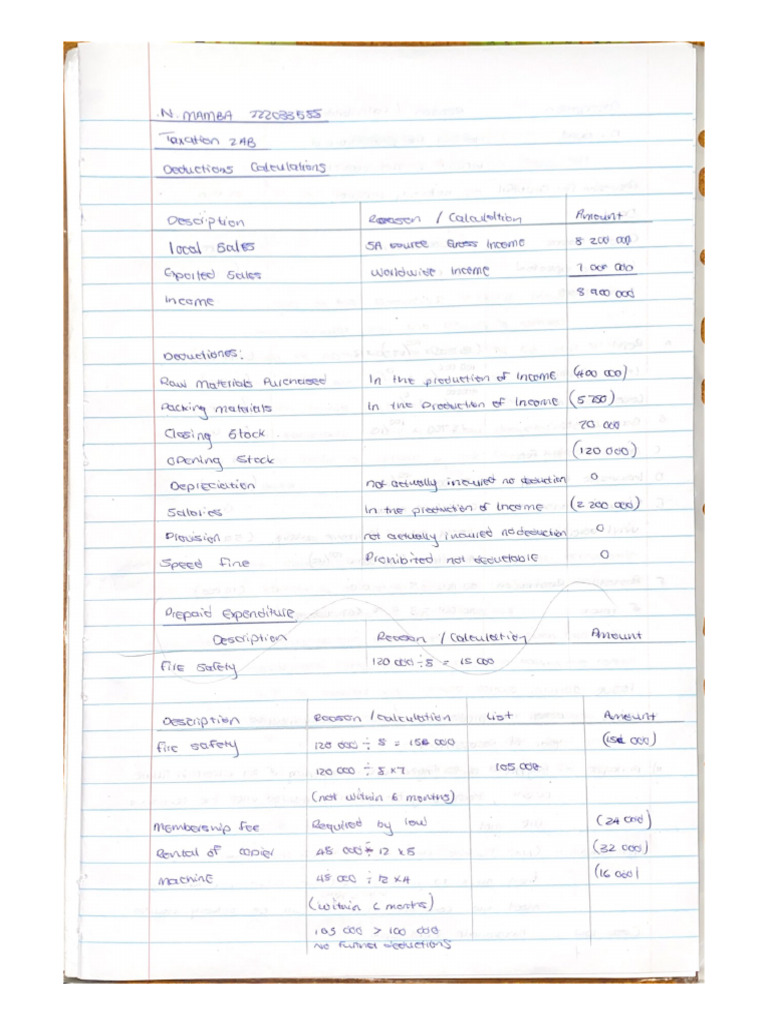 N. MAMBA 222033555
Taxation 2AB
Deductions Calculations
Description Reason / Calculation Amount
Local Sales SA source Gross Income 8 200 000
Exported Sales Worldwide Income 7 000 000
Income 8 900 000
Deductiones:
Raw Materials Purchased In the production of Income (400 000)
Packing materials In the Production of Income (5 750)
Closing Stock 70 000
Opening Stock (120 000)
Depreciation not actually incurred no deduction 0
Salaries In the production of Income (2 200 000)
Provision not actually incurred no deduction 0
Speed Fine Prohibited not deductable 0
Prepaid Expenditure
Description Reason / Calculation Amount
Fire Safety 120 000 ÷ 8 = 15 000
Description Reason / Calculation List Amount
Fire safety 120 000 ÷ 8 = 000 ( 000)
120 000 ÷ 8 x 7 105 000
(not within 6 months)
Membership fee Required by law (24 000)
Rental of copier 48 000 ÷ 12 x 8 (32 000)
Machine 48 000 ÷ 12 x 4 (16 000)
(within 6 months)
105 000 > 100 000
No further deductions